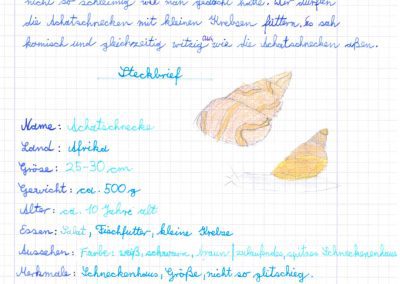 nicht so schleimig wie man gedacht hatte. Wir durften
die Achatschnecken mit kleinen Krebsen füttern. Es sah
komisch und gleichzeitig witzig aus wie die Achatschnecken aßen.
Steckbrief
Name: Achatschnecke
Land: Afrika
Gröse: 25-30 cm
Gewicht: ca. 500 g
Alter: ca. 10 Jahre alt
Essen: Salat, Fischfutter, kleine Krebse
Aussehen: Farbe: weiß, schwarz, braun / zulaufendes, spitzes Schneckenhaus
Merkmale: Schneckenhaus, Größe, nicht so glitschig.